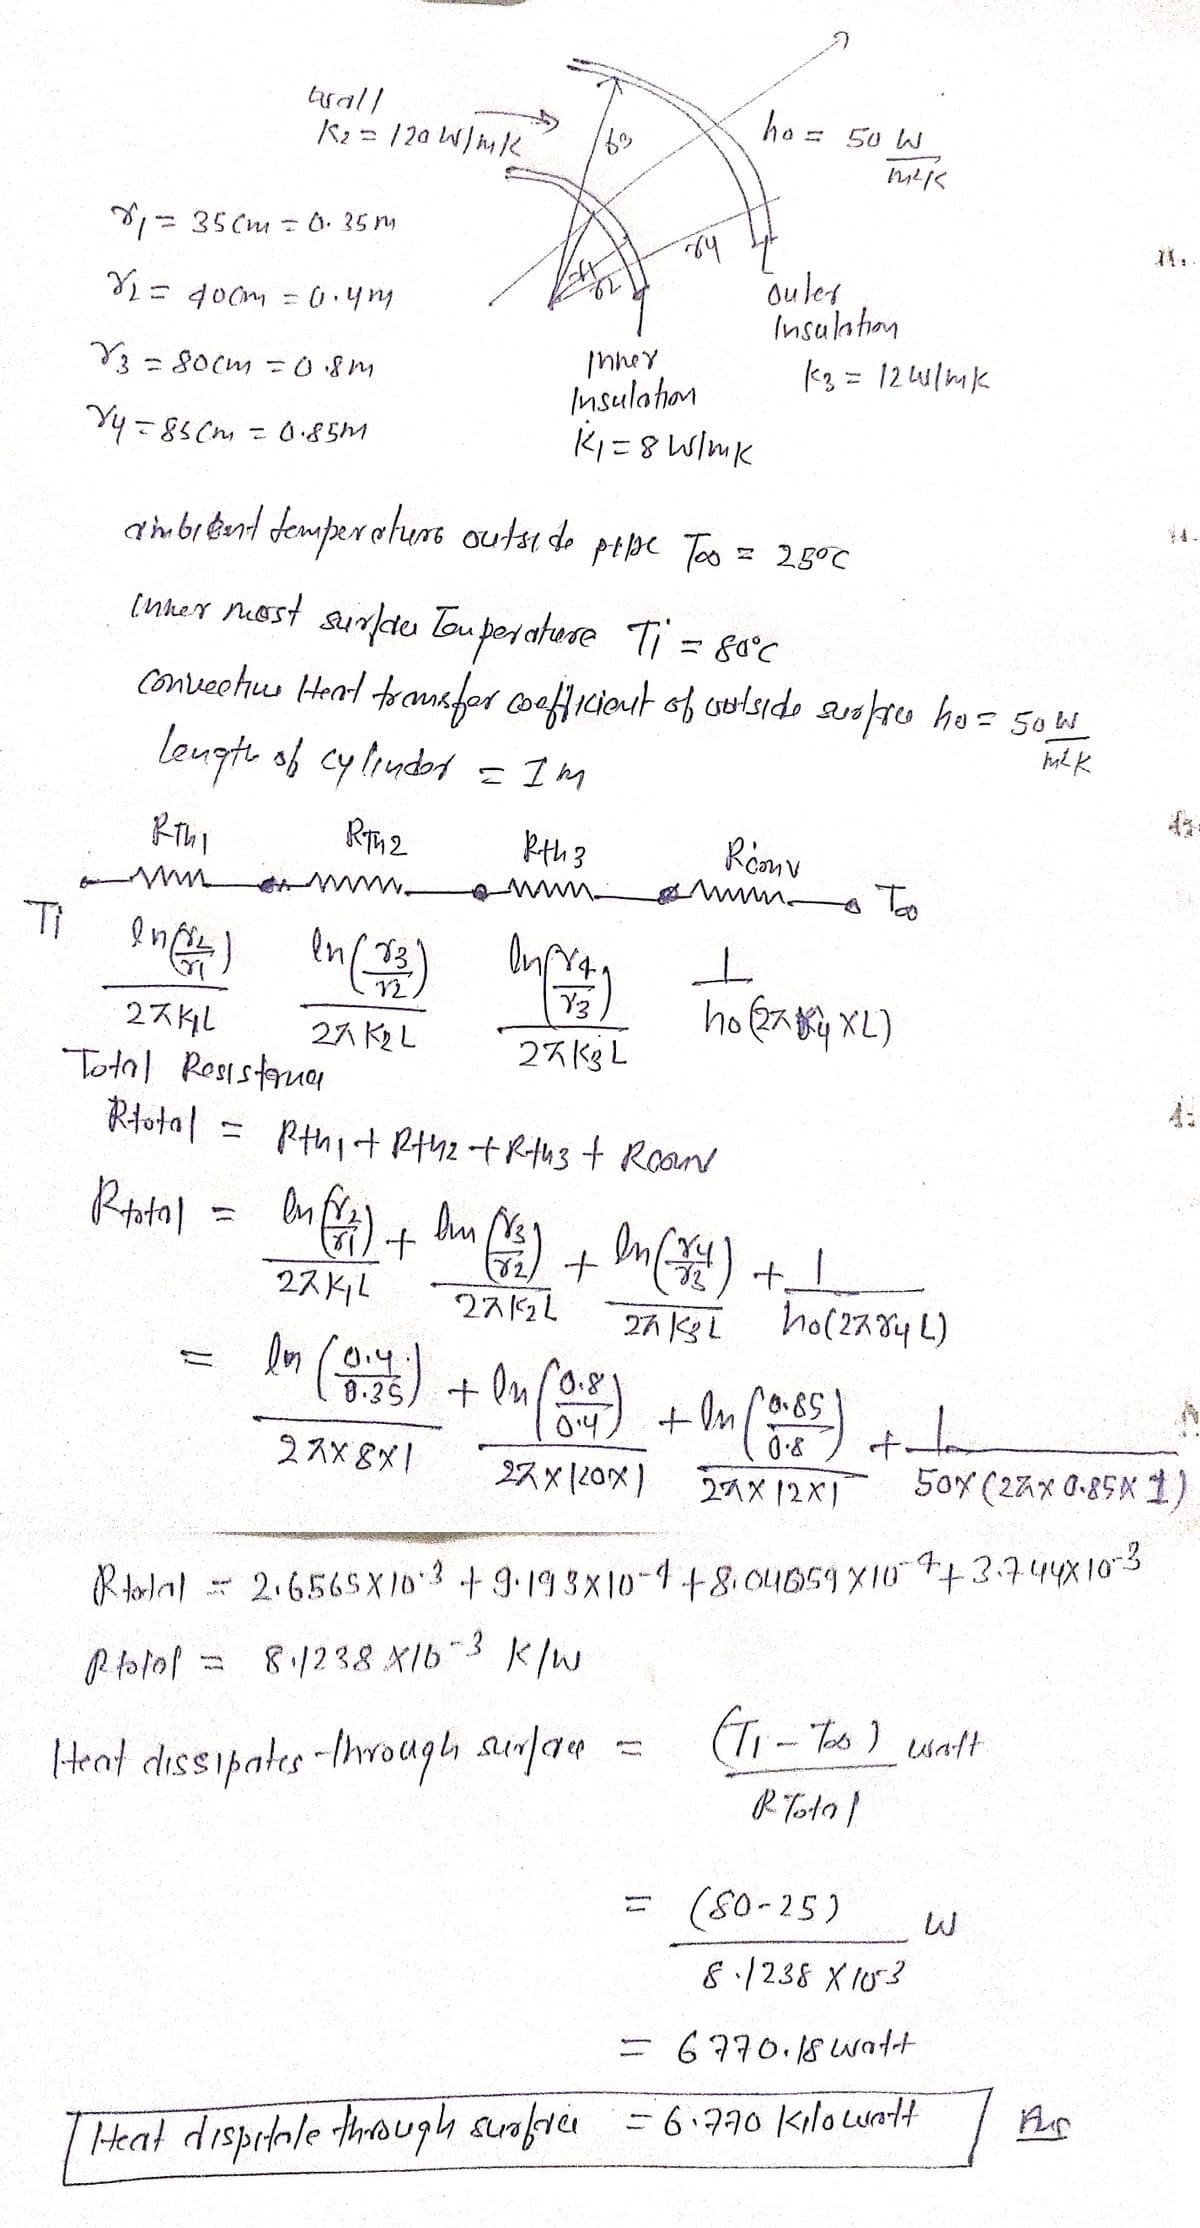 wall
K2 = 120 W/mK
r3
ho = 50 W
m²K
r1 = 35 cm = 0.35 m
r2 = 40cm = 0.4m
r3 = 80cm = 0.8m
r4 = 85cm = 0.85m
r4
r1
r2
outer
Insulation
k3 = 12 W/mK
Inner
Insulation
K1 = 8 W/mK
ambient temperature outside pipe T∞ = 25°C
Inner most surface Temperature Ti = 80°C
convective Heat transfer coefficient of outside surface ho = 50 W
m²K
Length of cylinder = 1 m
RTh1 RTh2 Rth3 Rconv
Ti T∞
ln(r2/r1) ln(r3/r2) ln(r4/r3) 1
2πK1L 2πK2L 2πK3L ho(2πr4×L)
Total Resistance
Rtotal = Rth1 + Rth2 + Rth3 + Rconv
Rtotal = ln(r2/r1) + ln(r3/r2) + ln(r4/r3) + 1
2πK1L 2πK2L 2πK3L ho(2πr4L)
= ln(0.4/0.35) + ln(0.8/0.4) + ln(0.85/0.8) + 1
2π×8×1 2π×120×1 2π×12×1 50×(2π×0.85×1)
Rtotal = 2.6565×10⁻³ + 9.193×10⁻⁴ + 8.04059×10⁻⁴ + 3.744×10⁻³
Rtotal = 8.1238×10⁻³ K/W
Heat dissipates through surface = (T1 - T∞) watt
RTotal
= (80-25) W
8.1238×10⁻³
= 6770.18 watt
Heat dispitale through surface = 6.770 kilowatt Ans